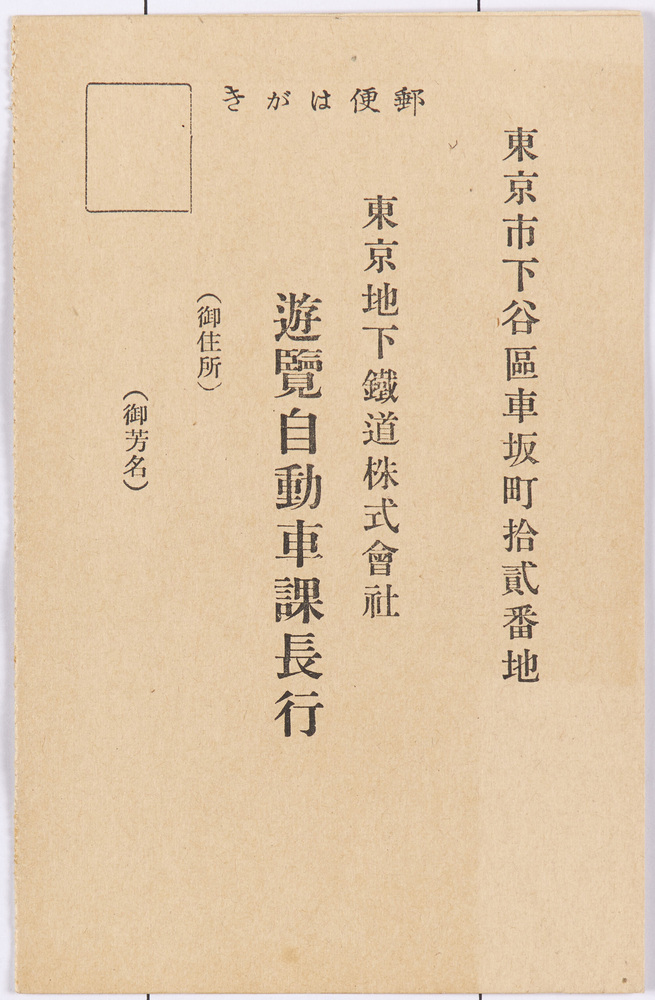 郵便はがき
東京市下谷區車坂町拾貳番地
東京地下鐵道株式會社
遊覽自動車課長行
（御住所）
（御芳名）